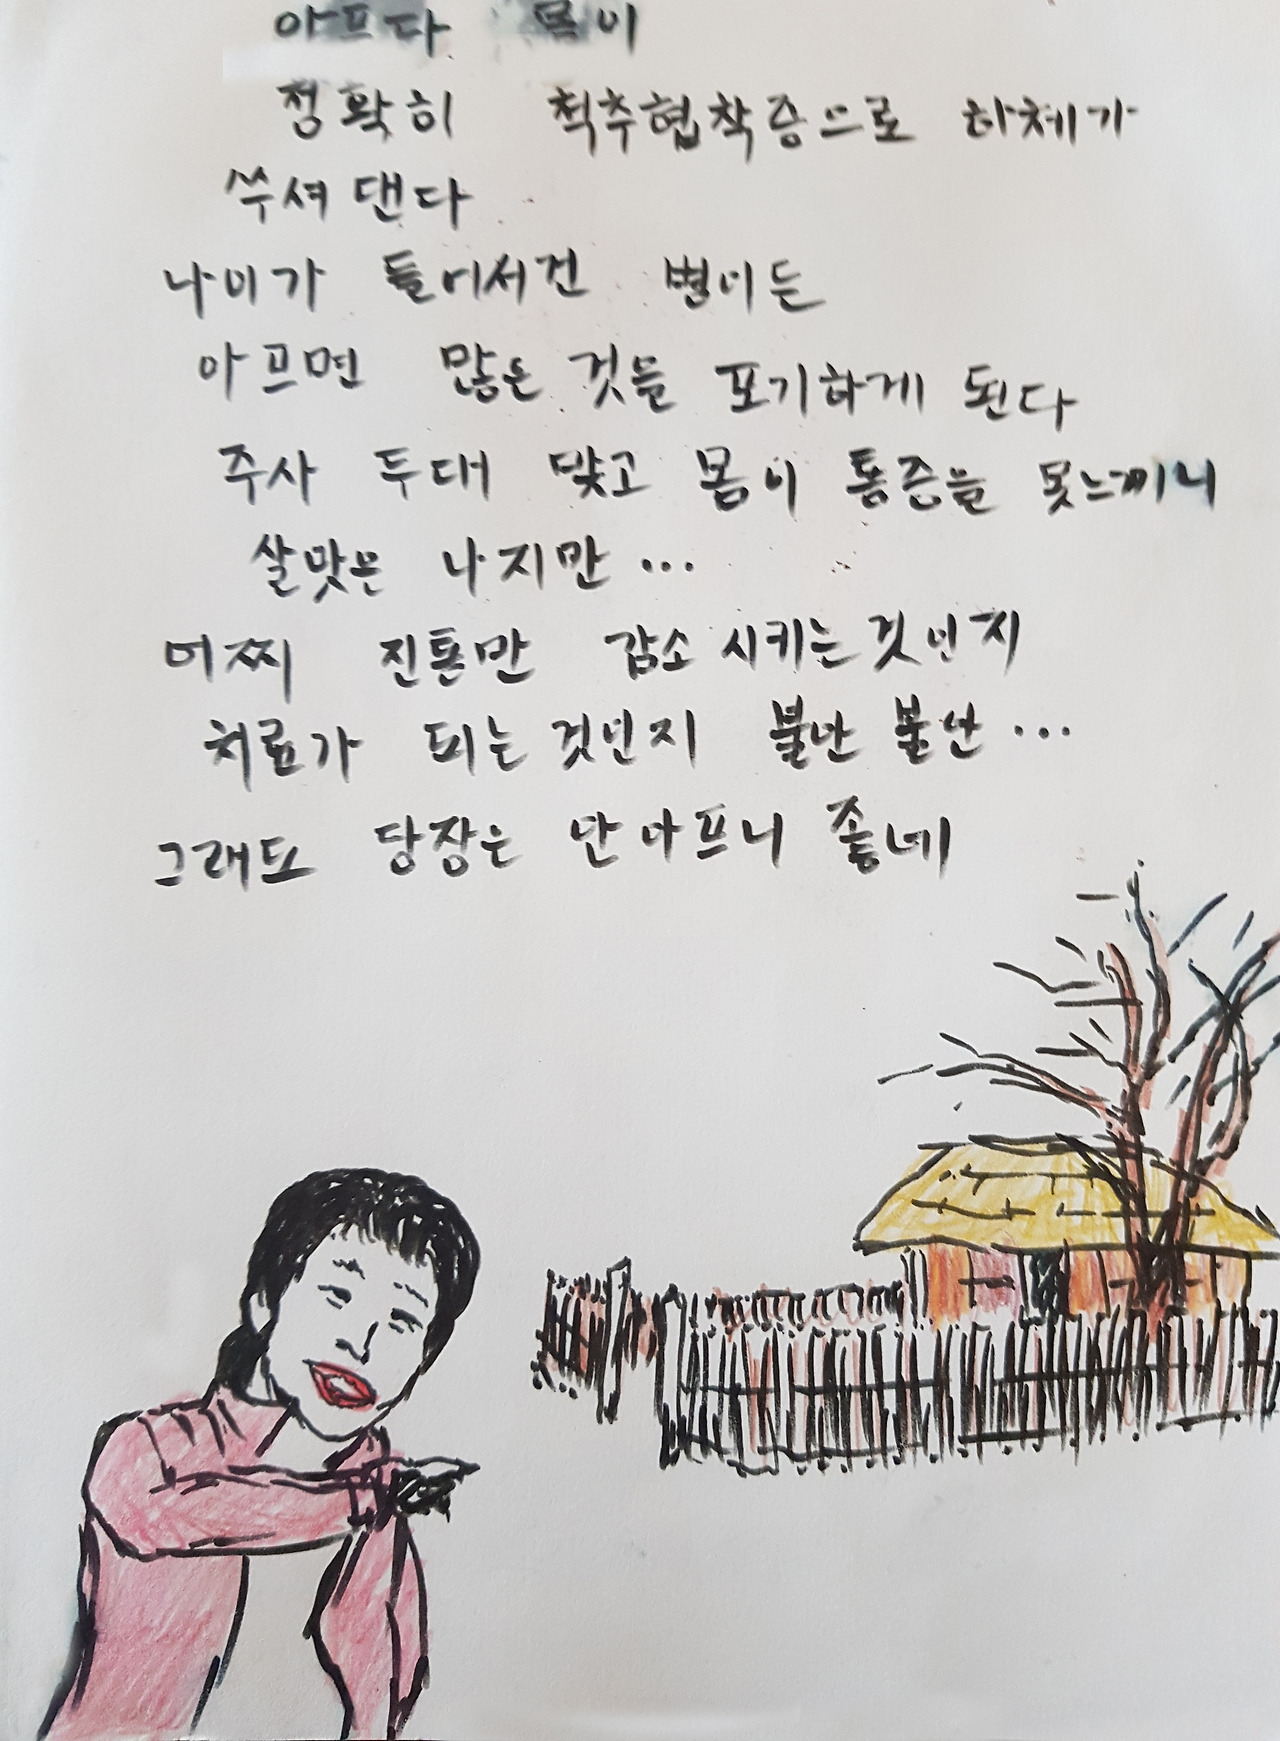 아프다 몸이
정확히 척추협착증으로 하체가
쑤셔 댄다
나이가 들어서건 병이든
아프면 많은 것을 포기하게 된다
주사 두대 맞고 몸이 통증을 못느끼니
살맛은 나지만 ...
어찌 진통만 감소 시키는 것인지
치료가 되는 것인지 불안 불안 ...
그래도 당장은 안 아프니 좋네